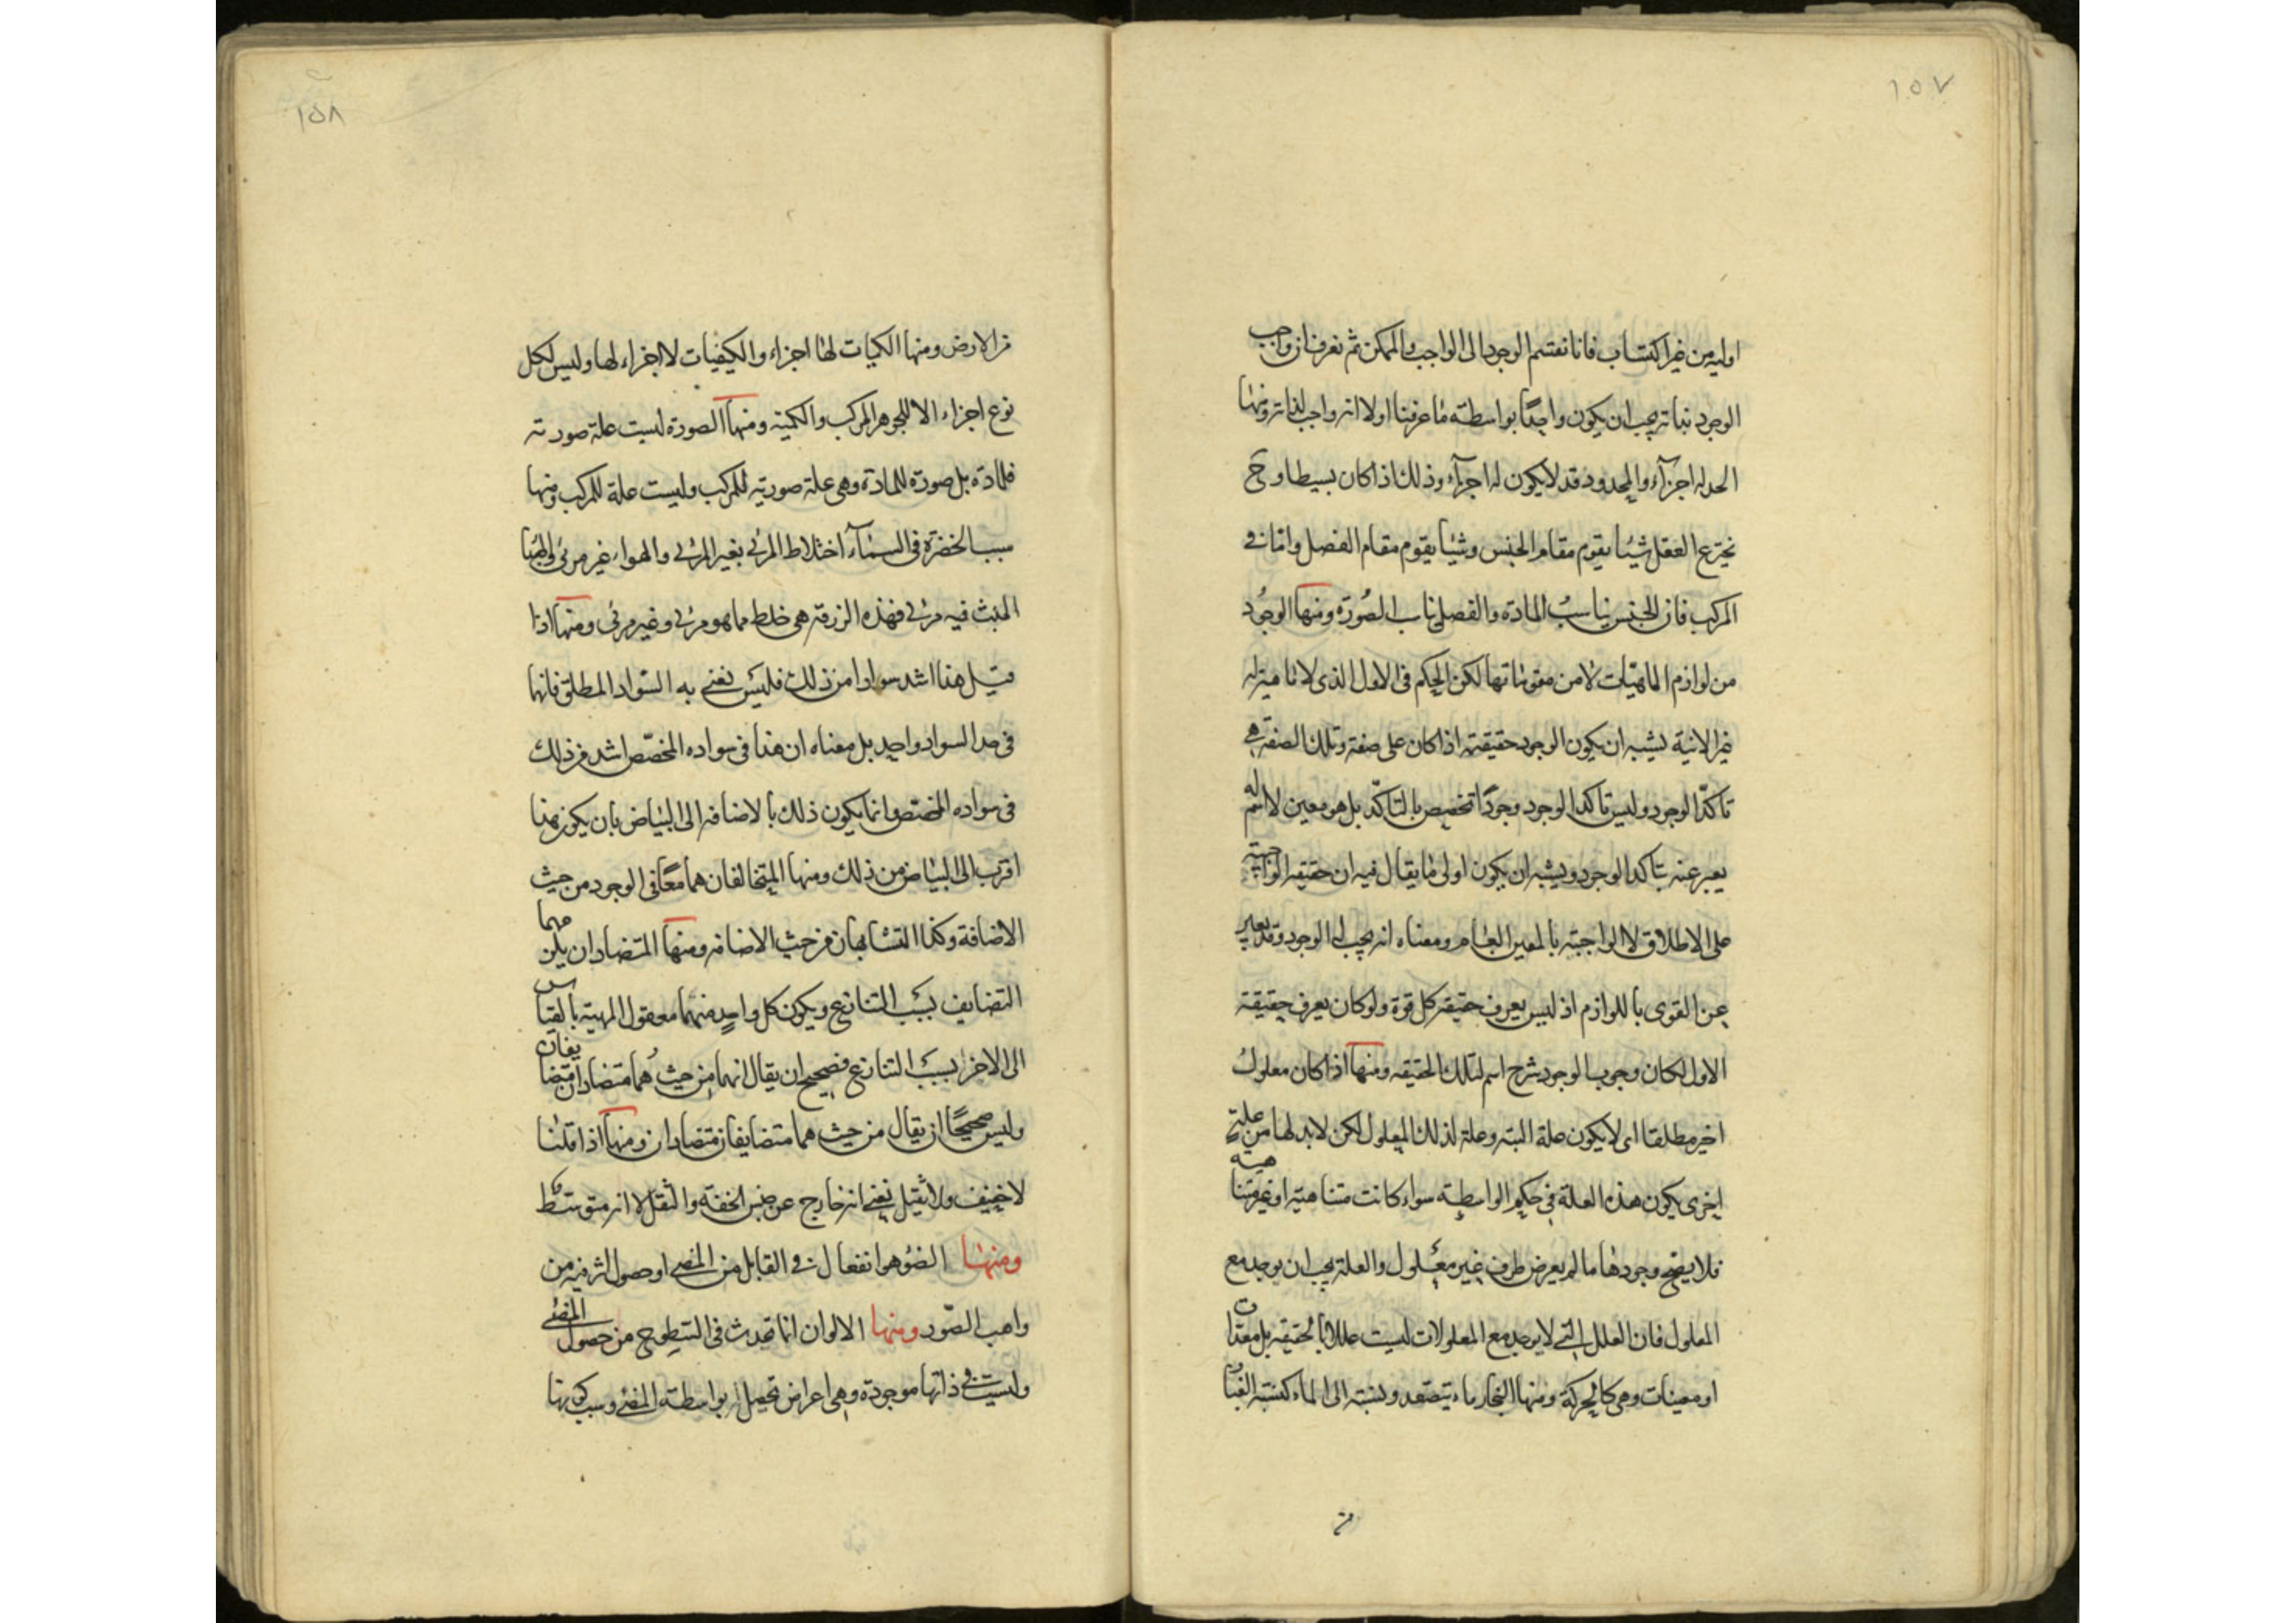 ١٥٧
اولية من غير اكتساب فانا نقسم الوجود الى الواجب والممكن ثم نعرف ان واجب
الوجود بذاته يجب ان يكون واحدًا بواسطة ما عرفنا اولا انه واجب لذاته ومنها
الحد له اجزآء والمحدود قد لا يكون له اجزآء وذلك اذا كان بسيطا وح
يخترع العقل شيئا يقوم مقام الجنس وشيئا يقوم مقام الفصل واما في
المركب فان الجنس يناسب المادة والفصل يناسب الصورة ومنها الوجود
من لوازم الماهيّات لا من مقوماتها لكن الحكم في الاول الذى لا ماهية له
غير الانية يشبه ان يكون الوجود حقيقته اذا كان على صفة وتلك الصفة هي
تاكّد الوجود وليس تاكد الوجود وجودًا تخصص بالتاكّد بل هو معين لا اسم له
يعبر عنه بتاكد الوجود ويشبه ان يكون اولى ما يقال فيه ان حقيقته الواجبية
على الاطلاق لا الواجبية بالمعين العام ومعناه انه يجب له الوجود وقد يعبر
عن القوى باللوازم اذ ليس يعرف حقيقة كل قوة ولو كان يعرف حقيقة
الاول لكان وجوب الوجود شرح اسم لتلك الحقيقه ومنها اذا كان معلول
اخير مطلقا اى لا يكون علة البته وعلة لذلك المعلول لكن لا بد لها من علة
اخرى يكون هذه العلة في حكم الواسطة سواء كانت متناهية او غير متناهية
فلا يصح وجودها ما لم يعرض طرف غير معلول والعلة يجب ان يوجد مع
المعلول فان العلل التي لا يوجد مع المعلولات ليست عللا بالحقيقه بل معدات
او معينات وهي كالحركة ومنها البخار ماء يتصعد ونسبته الى الماء كنسبة الغبار
١٥٨
من الارض ومنها الكميات لها اجزاء والكيفيات لا اجزاء لها وليس لكل
نوع اجزاء الا للجوهر المركب والكمية ومنها الصورة ليست علة صورته
للمادة بل صورة للمادة وهي علة صورتيه للمركب وليست علة للمركب ومنها
سبب الخضرة في السمآء اختلاط المرئى بغير المرئى والهواء غير مرئى والهبا
المنبث فيه مرئى فهذه الزرقة هى خلط مما هو مرئى وغير مرئى ومنها اذا
قيل هذا اشد سوادا من ذلك فليس نعنى به السّواد المطلق فانها
في حد السواد واحد بل معناه ان هذا في سواده المخصّص اشد من ذلك
في سواده المختص وانما يكون ذلك بالاضافه الى البياض بان يكون هذا
اقرب الى البياض من ذلك ومنها المتخالفان هما معًا في الوجود من حيث
الاضافة وكذا المتشابهان من حيث الاضافه ومنها المتضادان يلزمهما
التضايف بسبب التنازع ويكون كل واحد منهما معقول المهية بالقياس
الى الاخر بسبب التنازع فصحيح ان يقال انهما من حيث هما متضادان متضايفان
وليس صحيحًا ان يقال من حيث هما متضايفان متضادان ومنها اذا قلنا
لا خفيف ولا ثقيل نعنى انه خارج عن جنس الخفة والثقل لا انه متوسّط
ومنها الضوء هو انفعال في القابل من المضى او حصول اثر فيه من
واهب الصّور ومنها الالوان انما تحدث في السّطوح من حصول المضئى
وليست في ذاتها موجودة وهى اعراض تحصل بواسطة المضئ وسبب كونها